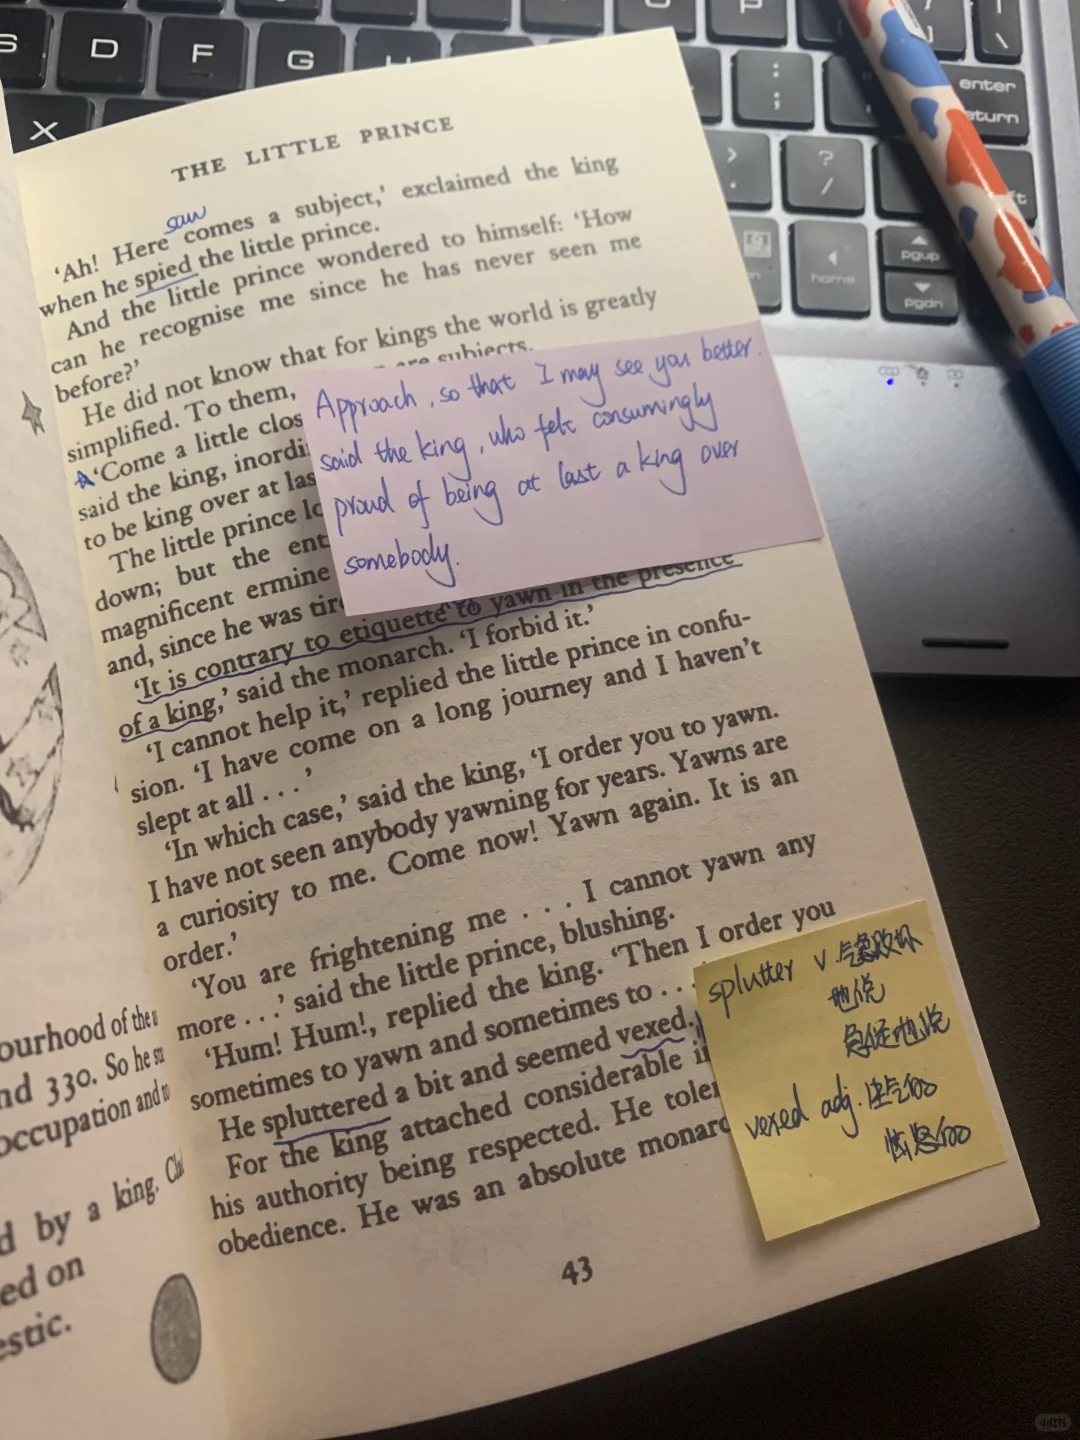 THE LITTLE PRINCE
saw
‘Ah! Here comes a subject,’ exclaimed the king
when he spied the little prince.
And the little prince wondered to himself: ‘How
can he recognise me since he has never seen me
before?’
He did not know that for kings the world is greatly
simplified. To them, are subjects.
‘Come a little clos
said the king, inordi
to be king over at las
The little prince lo
down; but the ent
magnificent ermine
and, since he was tire
‘It is contrary to etiquette to yawn in the presence
of a king,’ said the monarch. ‘I forbid it.’
‘I cannot help it,’ replied the little prince in confu-
sion. ‘I have come on a long journey and I haven’t
slept at all . . .’
‘In which case,’ said the king, ‘I order you to yawn.
I have not seen anybody yawning for years. Yawns are
a curiosity to me. Come now! Yawn again. It is an
order.’
‘You are frightening me . . . I cannot yawn any
more . . .’ said the little prince, blushing.
‘Hum! Hum!, replied the king. ‘Then I order you
sometimes to yawn and sometimes to . . .
He spluttered a bit and seemed vexed.
For the king attached considerable i
his authority being respected. He toler
obedience. He was an absolute monarc
43
Approach, so that I may see you better.
said the king, who felt consumingly
proud of being at last a king over
somebody.
splutter v.气急败坏
地说
急促地说
vexed adj.生气的
恼怒的
ourhood of the
nd 330. So he
occupation and
d by a king.
ed on
estic.
S
D
F
G
X
P
enter
return
home
pgup
pgdn